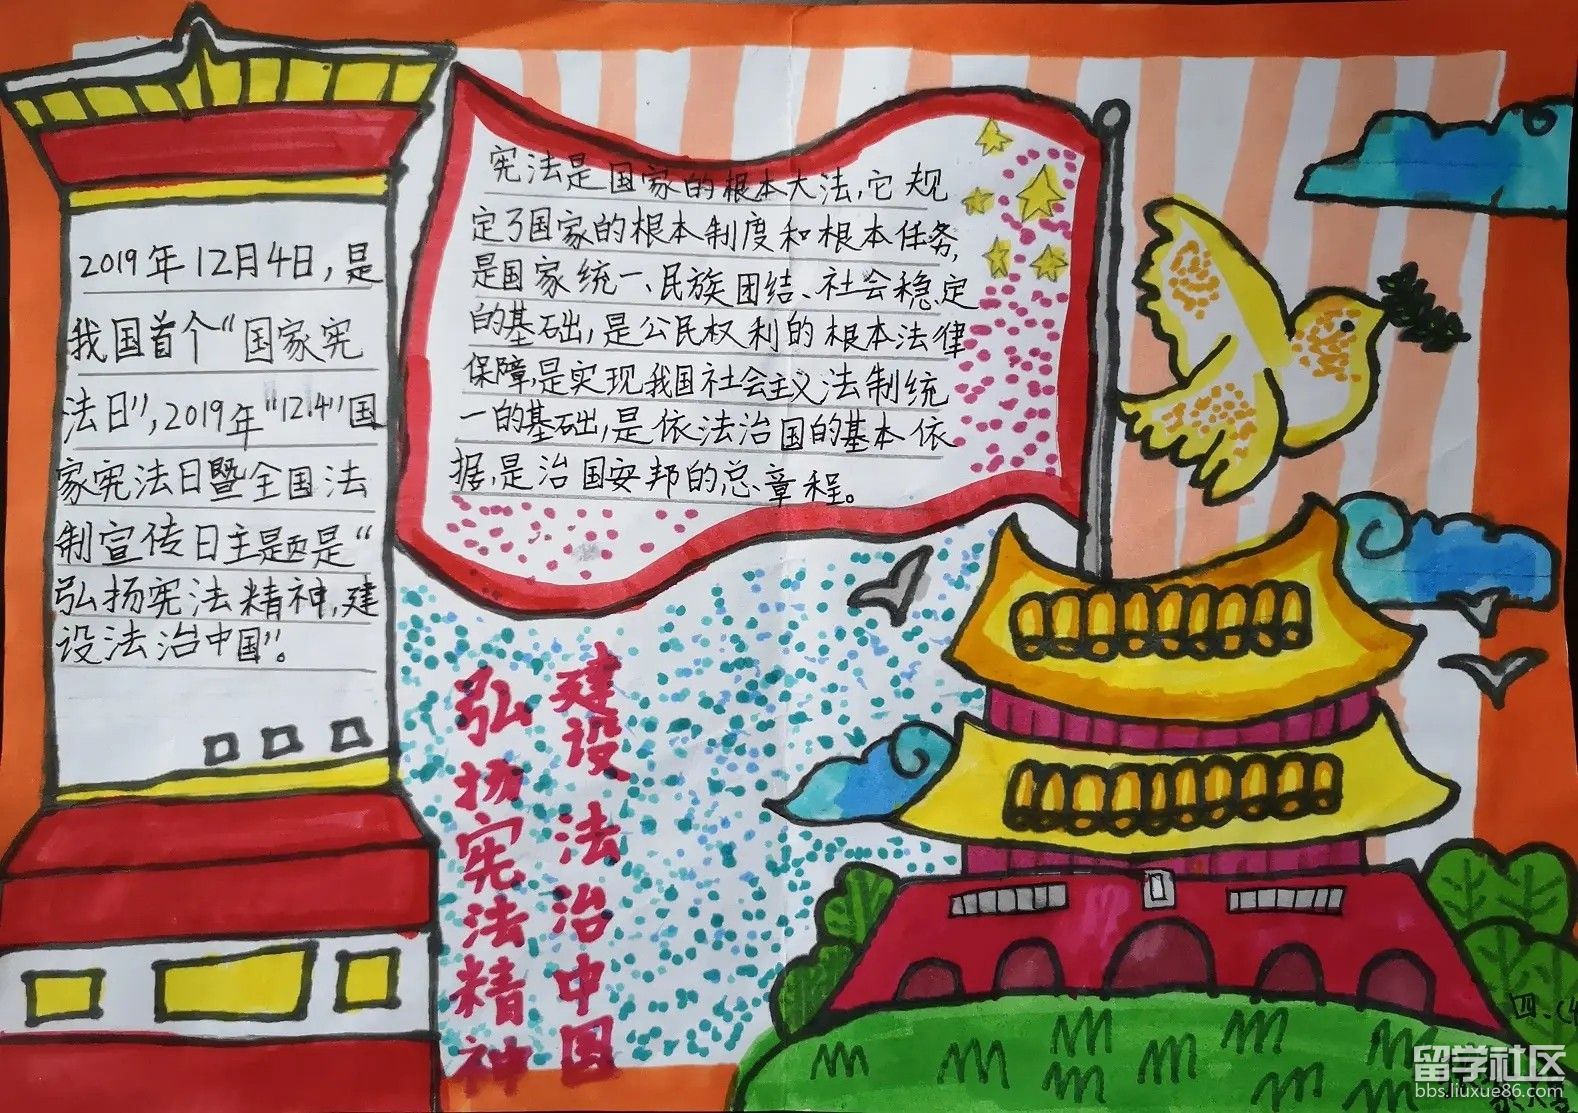 2019年12月4日,是
我国首个“国家宪
法日”,2019年“12.4”国
家宪法日暨全国法
制宣传日主题是“
弘扬宪法精神,建
设法治中国”。
宪法是国家的根本大法,它规
定了国家的根本制度和根本任务,
是国家统一、民族团结、社会稳定
的基础,是公民权利的根本法律
保障,是实现我国社会主义法制统
一的基础,是依法治国的基本依
据,是治国安邦的总章程。
弘扬宪法精神
建设法治中国
留学社区
bbs.liuxue86.com